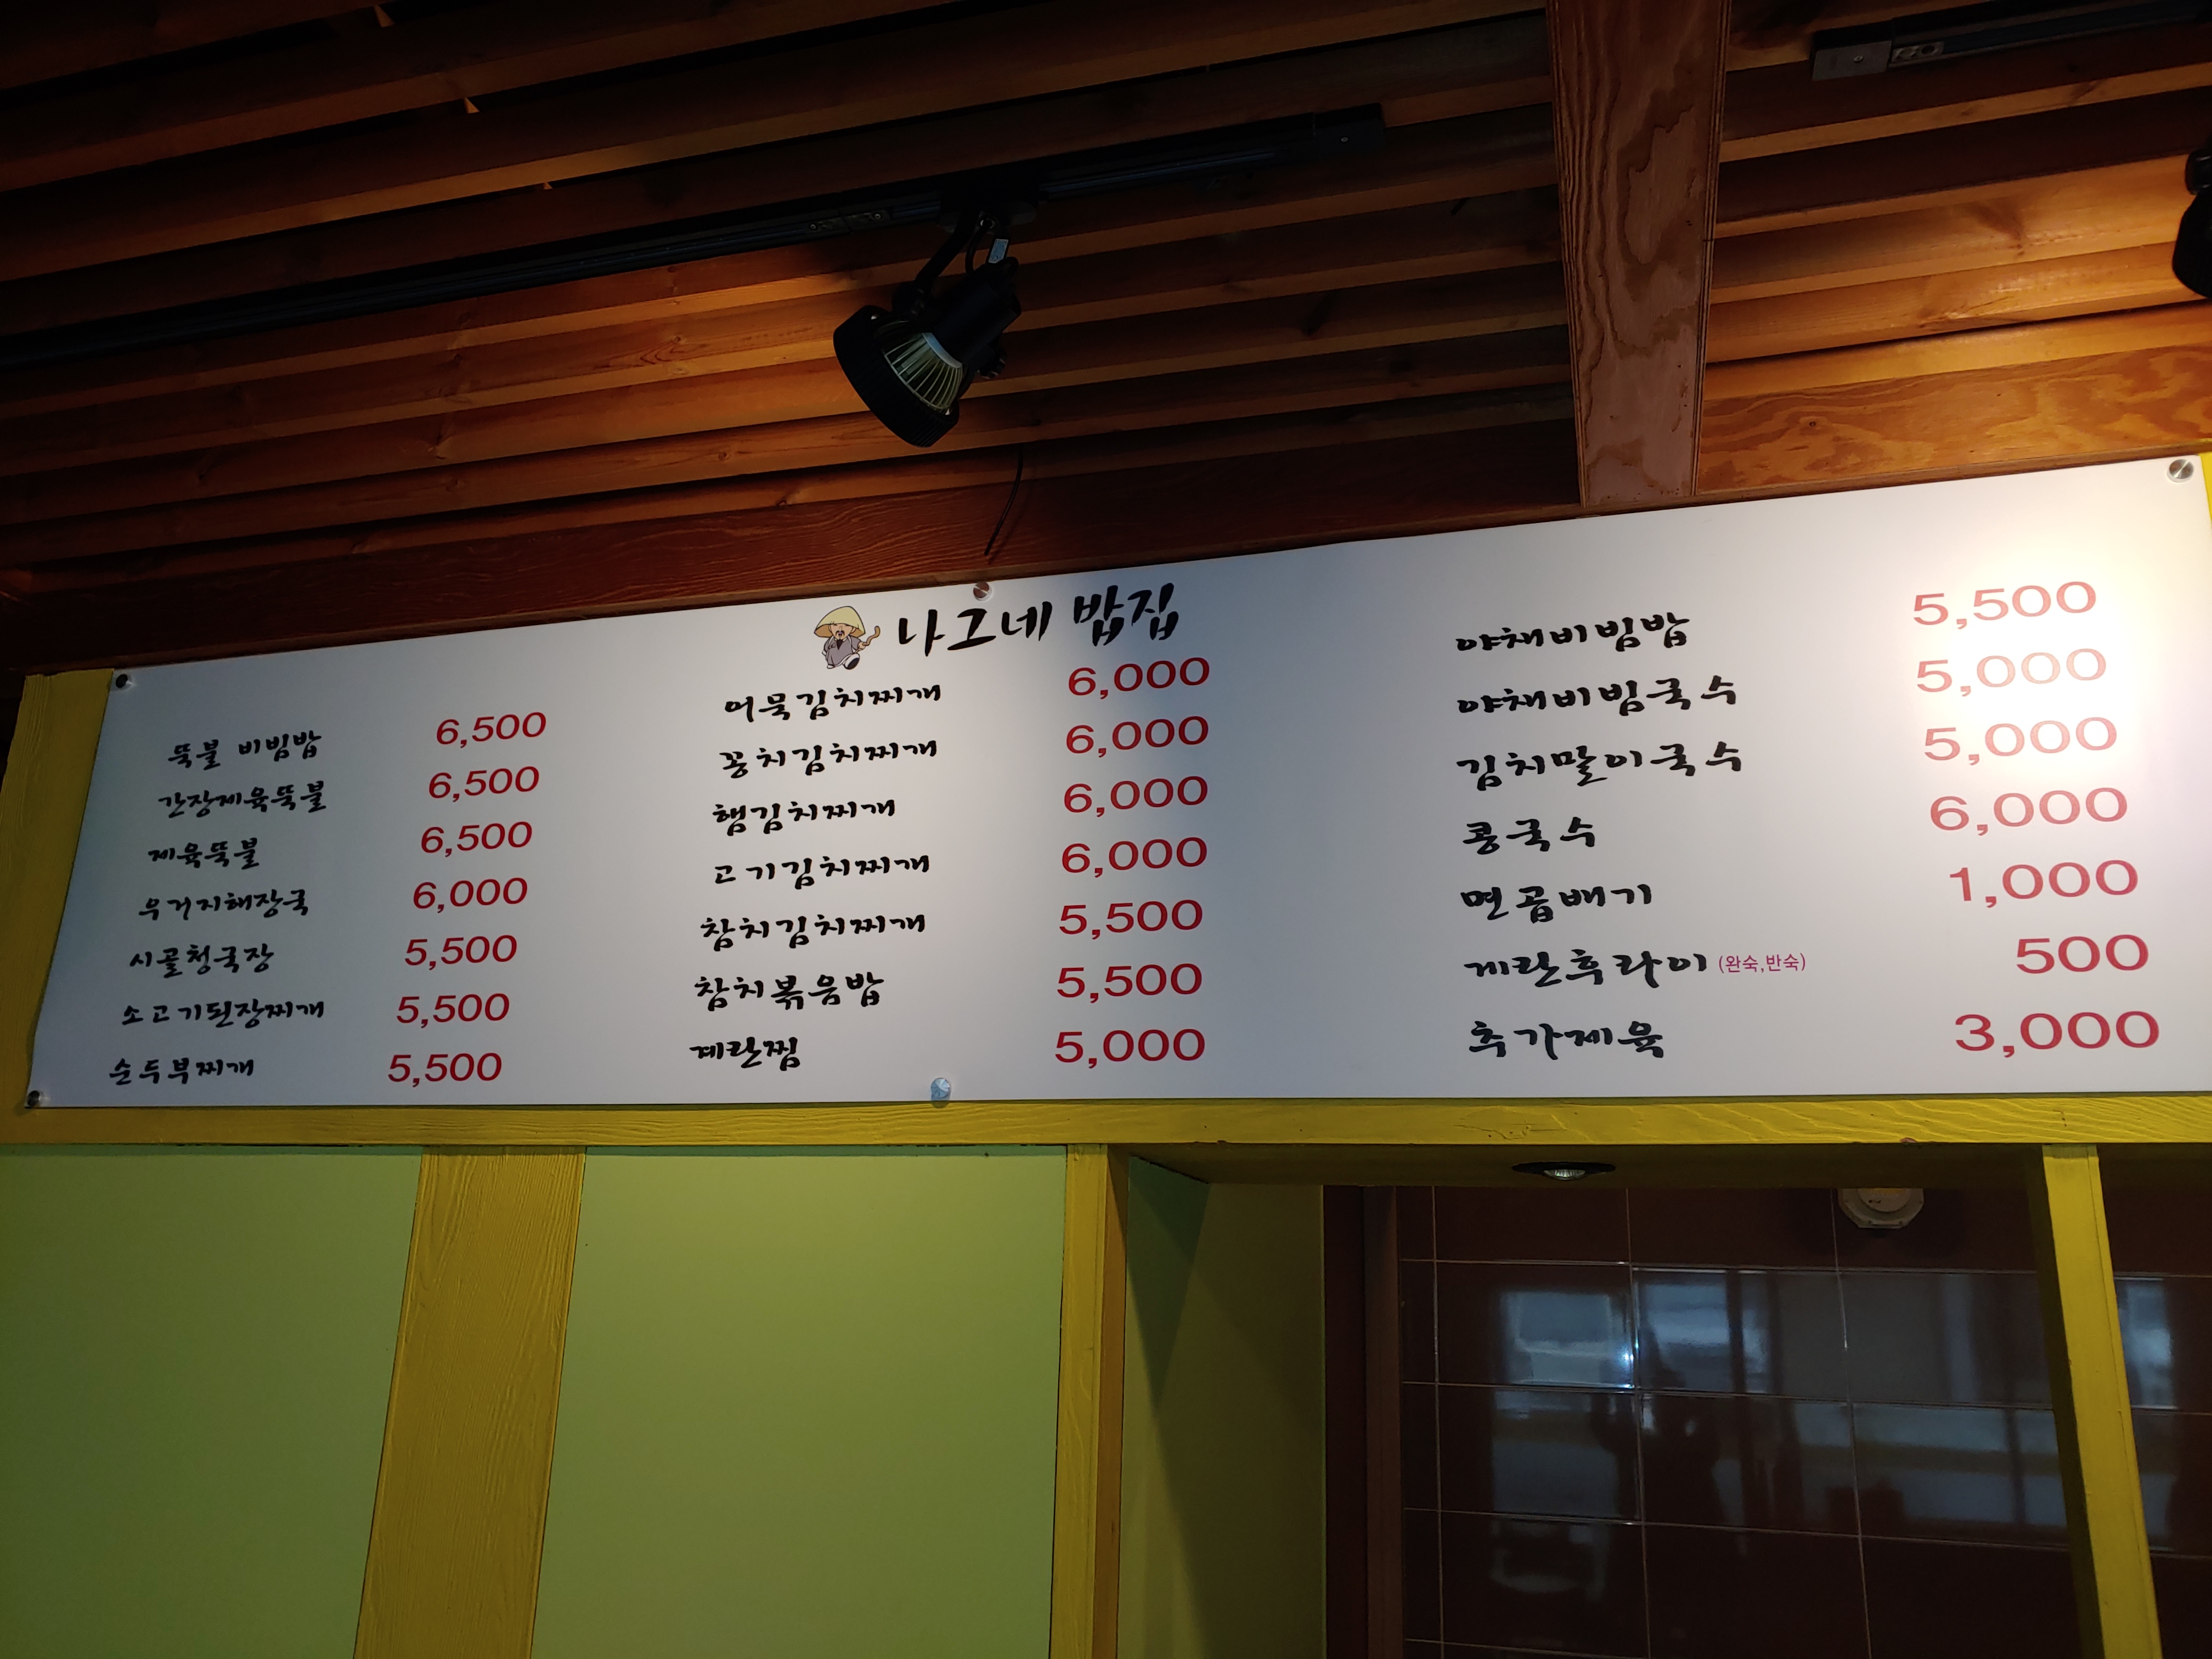 나그네 밥집
뚝불 비빔밥 6,500
간장제육뚝불 6,500
제육뚝불 6,500
우거지해장국 6,000
시골청국장 5,500
소고기된장찌개 5,500
순두부찌개 5,500
어묵김치찌개 6,000
꽁치김치찌개 6,000
햄김치찌개 6,000
고기김치찌개 6,000
참치김치찌개 5,500
참치볶음밥 5,500
계란찜 5,000
야채비빔밥 5,500
야채비빔국수 5,000
김치말이국수 5,000
콩국수 6,000
면곱배기 1,000
계란후라이 (완숙,반숙) 500
추가제육 3,000